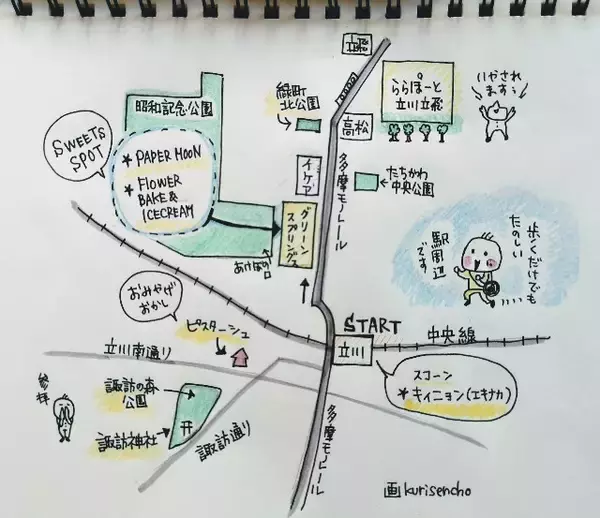 立飛
ららぽーと
立川立飛
いやされ
ます…
昭和記念公園
緑町
北公園
高松
SWEETS
SPOT
★ PAPER MOON
★ FLOWER
BAKE &
ICECREAM
イケア
多摩モノレール
たちかわ
中央公園
グリーン
スプリングス
あけぼの口
歩くだけでも
たのしい
駅周辺
です
おみやげ
おかし
ピスターシュ
START
立川
中央線
立川南通り
スコーン
★ キィニョン(エキナカ)
参拝
諏訪の森
公園
諏訪神社
諏訪通り
多摩モノレール
画kurisencho